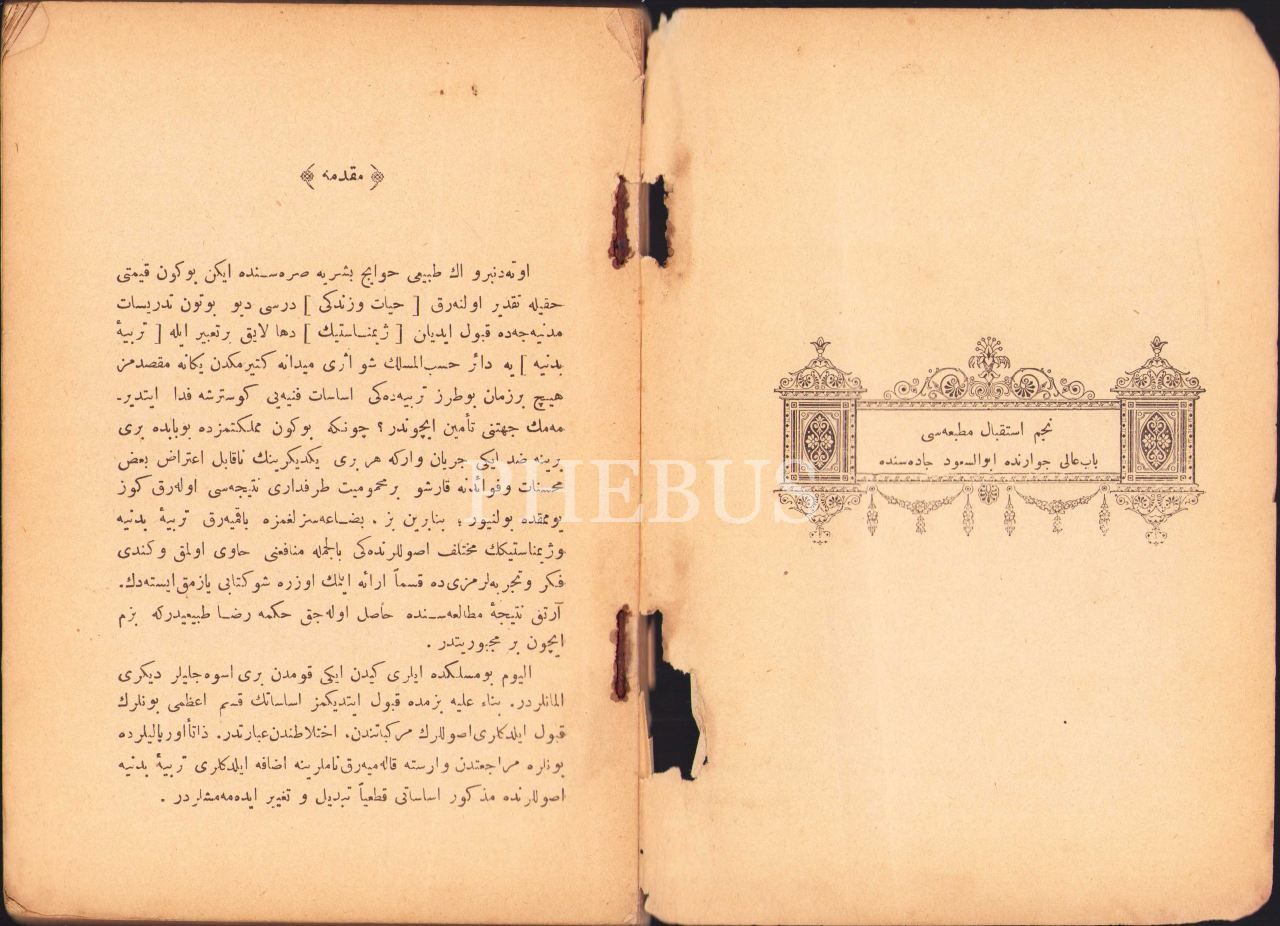 نجم استقبال مطبعه‌سی
باب عالی جوارنده ابوالسعود جاده‌سنده
مقدمه
اوته‌دنبرو اك طبیعی حوایج بشریه صره‌سنده ایكن بوكون قیمتی
حقیله تقدیر اولنه‌رق [ حیات وزندگی ] درسی دیو بوتون تدریسات
مدنیه‌جه‌ده قبول ایدیلن [ ژیمناستیك ] دها لایق برتعبیر ایله [ تربیهٔ
بدنیه ] یه دائر حسب‌المسلك شو اثری میدانه كتیرمكدن یگانه مقصدمز
هیچ برزمان بوطرز تربیه‌ده‌كی اساسات فنیه‌یی كوسترشه فدا ایتدیر-
مه‌مك جهتنی تأمین ایچوندر ؟ چونكه بوكون مملكتمزده بوبابده بری
برینه ضد ایكی جریان واركه هر بری یكدیكرینك ناقابل اعتراض بعض
محسنات وفوائدنه قارشو برمحرومیت طرفداری نتیجه‌سی اوله‌رق كوز
یوممقده بولنیور ؛ بنابرین بز . بضاعه‌سزلغمزه باقمیه‌رق تربیهٔ بدنیه
وژیمناستیكك مختلف اصوللرنده‌كی بالجمله منافعنی حاوی اولمق وكندی
فكر وتجربه‌لرمزی‌ده قسماً ارائه ایتمك اوزره شوكتابی یازمق ایسته‌دك.
آرتق نتیجهٔ مطالعه‌سنده حاصل اوله‌جق حكمه رضا طبیعیدركه بزم
ایچون بر مجبوریتدر .
الیوم بومسلكده ایلری كیدن ایكی قومدن بری اسوه‌جلیلر دیكری
المانلردر. بناء علیه بزمده قبول ایتدیكمز اساساتك قسم اعظمی بونلرك
قبول ایلدكلری‌اصوللرك مركباتندن، اختلاطندن‌عبارتدر. ذاتاً‌اوروپالیلرده
بونلره مراجعتدن وارسته قاله‌میه‌رق‌ناملرینه اضافه ایلدكلری تربیهٔ بدنیه
اصوللرنده مذكور اساساتی قطعیاً تبدیل و تغییر ایده‌مه‌مشلردر .
PHEBUS